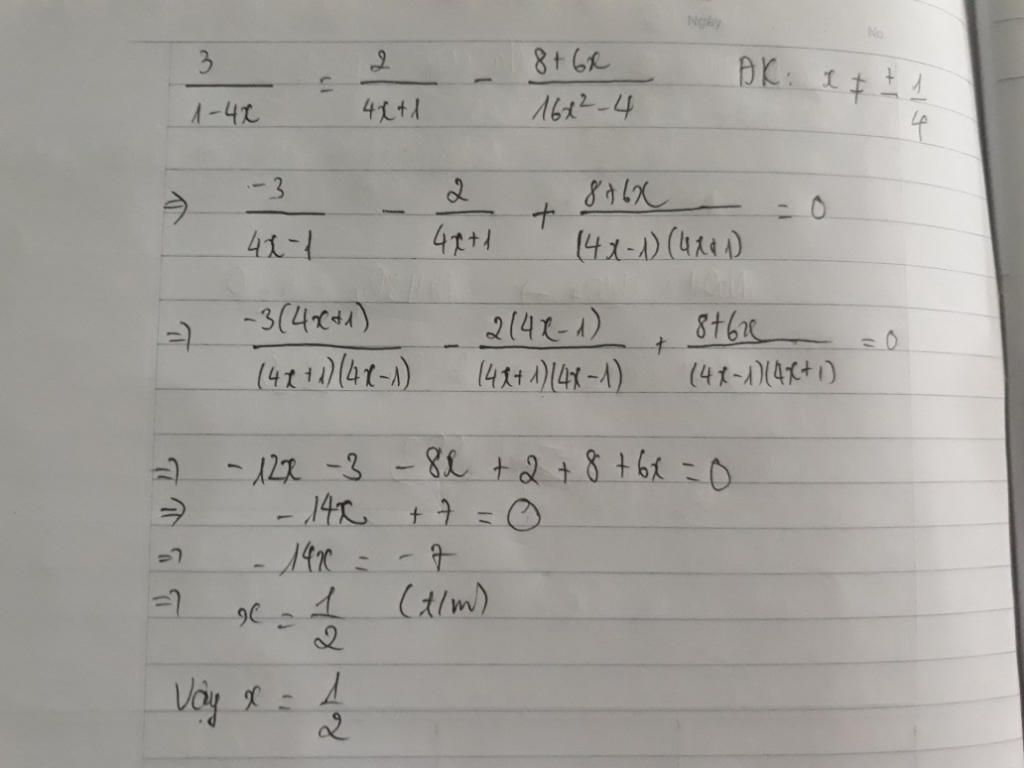 Ngày
No.
3/(1-4x) = 2/(4x+1) - (8+6x)/(16x²-4) ĐK: x ≠ ± 1/4
=> -3/(4x-1) - 2/(4x+1) + (8+6x)/((4x-1)(4x+1)) = 0
=> -3(4x+1)/((4x+1)(4x-1)) - 2(4x-1)/((4x+1)(4x-1)) + (8+6x)/((4x-1)(4x+1)) = 0
=> -12x -3 -8x +2 +8 +6x = 0
=> -14x +7 = 0
=> -14x = -7
=> x = 1/2 (t/m)
Vậy x = 1/2